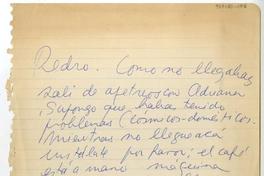 Pedro. Como no llegabas
salí de apetreos con Adriana
Supongo que habrá tenido
problemas (cosmicos-domésticos.
Mientras no llegue acá
instálate por favor; el café
está a mano máquina